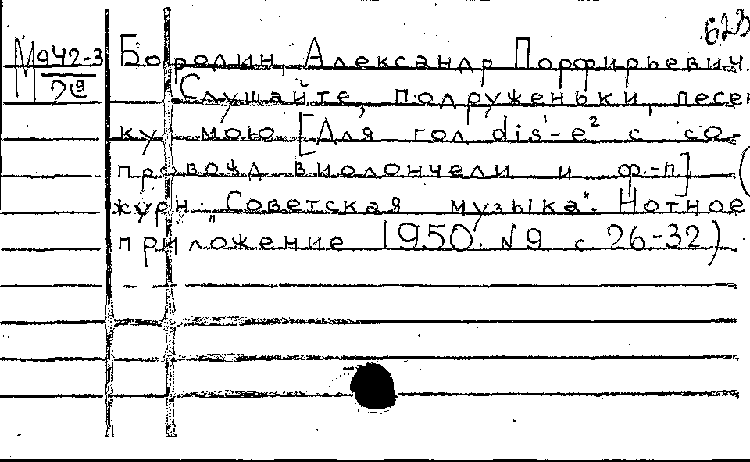 623
М 942-3 Бородин, Александр Порфирьевич.
Слушайте, подруженьки, песен-
ку мою [Для гол dis'-e² с со-
провожд виолончели и ф-п] (
журн. "Советская музыка". Нотное
приложение 1950. №9 с 26-32)